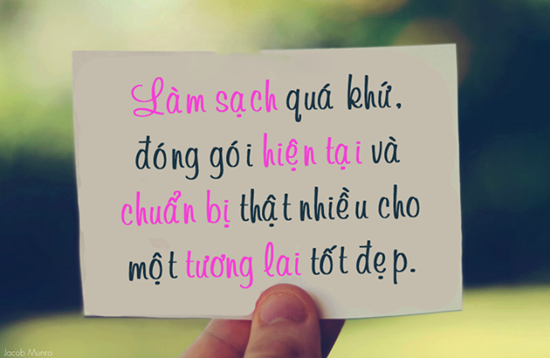 Làm sạch quá khứ,
đóng gói hiện tại và
chuẩn bị thật nhiều cho
một tương lai tốt đẹp.
Jacob Munroi